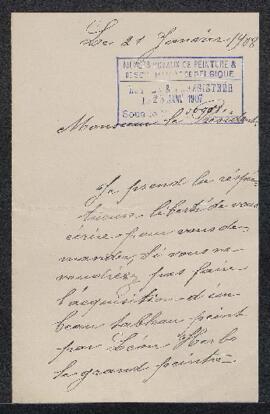 Le 21 Janvier 1908
MUSÉES ROYAUX DE PEINTURE &
DE SCULPTURE DE BELGIQUE
ENREGISTRÉE
23 JANV. 1907
Sous le
Monsieur le Président,
Je prend la respec-
tueuse liberté de vous
écrire pour vous de-
mander, si vous ne
voudriez pas faire
l'acquisition d'un
beau tableau peint
par Léon Herbo
le grand peintre